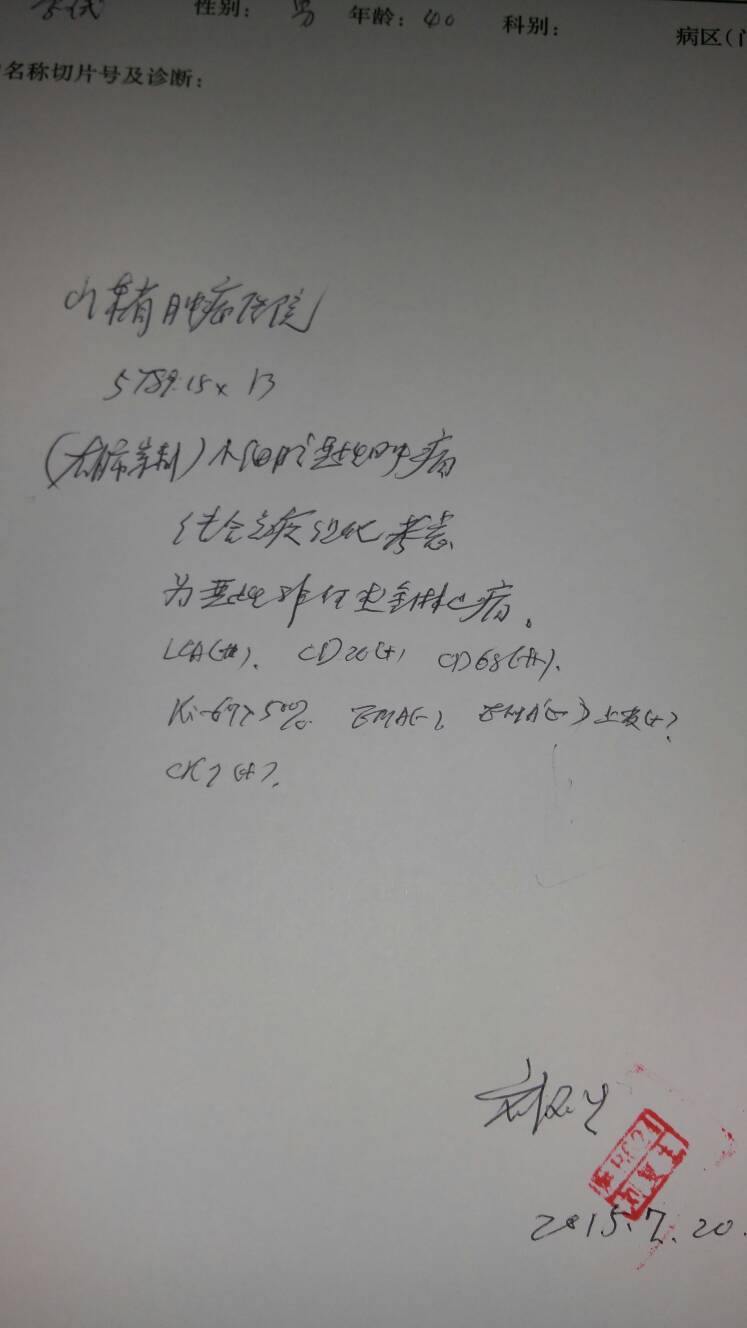 性别: 男 年龄: 40 科别: 病区(门
名称切片号及诊断:
山东省肿瘤医院
578915 x 13
小细胞恶性肿瘤
结合免疫组化考虑
为恶性非何杰金淋巴瘤。
LCA(#). CD20(+) CD68(#).
Ki-67>50% EMA(-), EMA(-)上皮(+)?
CK7(+).
2015.7.20.